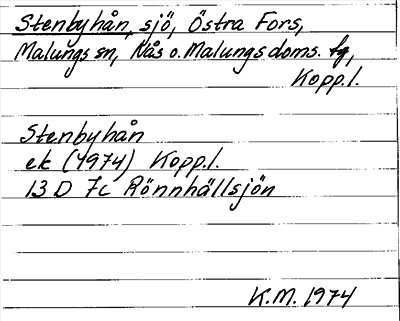 Stenbyhån, sjö, Östra Fors,
Malungs sn, Nås o. Malungs doms. fg,
Kopp.l.
Stenbyhån
ek (1974) Kopp.l.
13 D 7c Rönnhällsjön
K.M. 1974